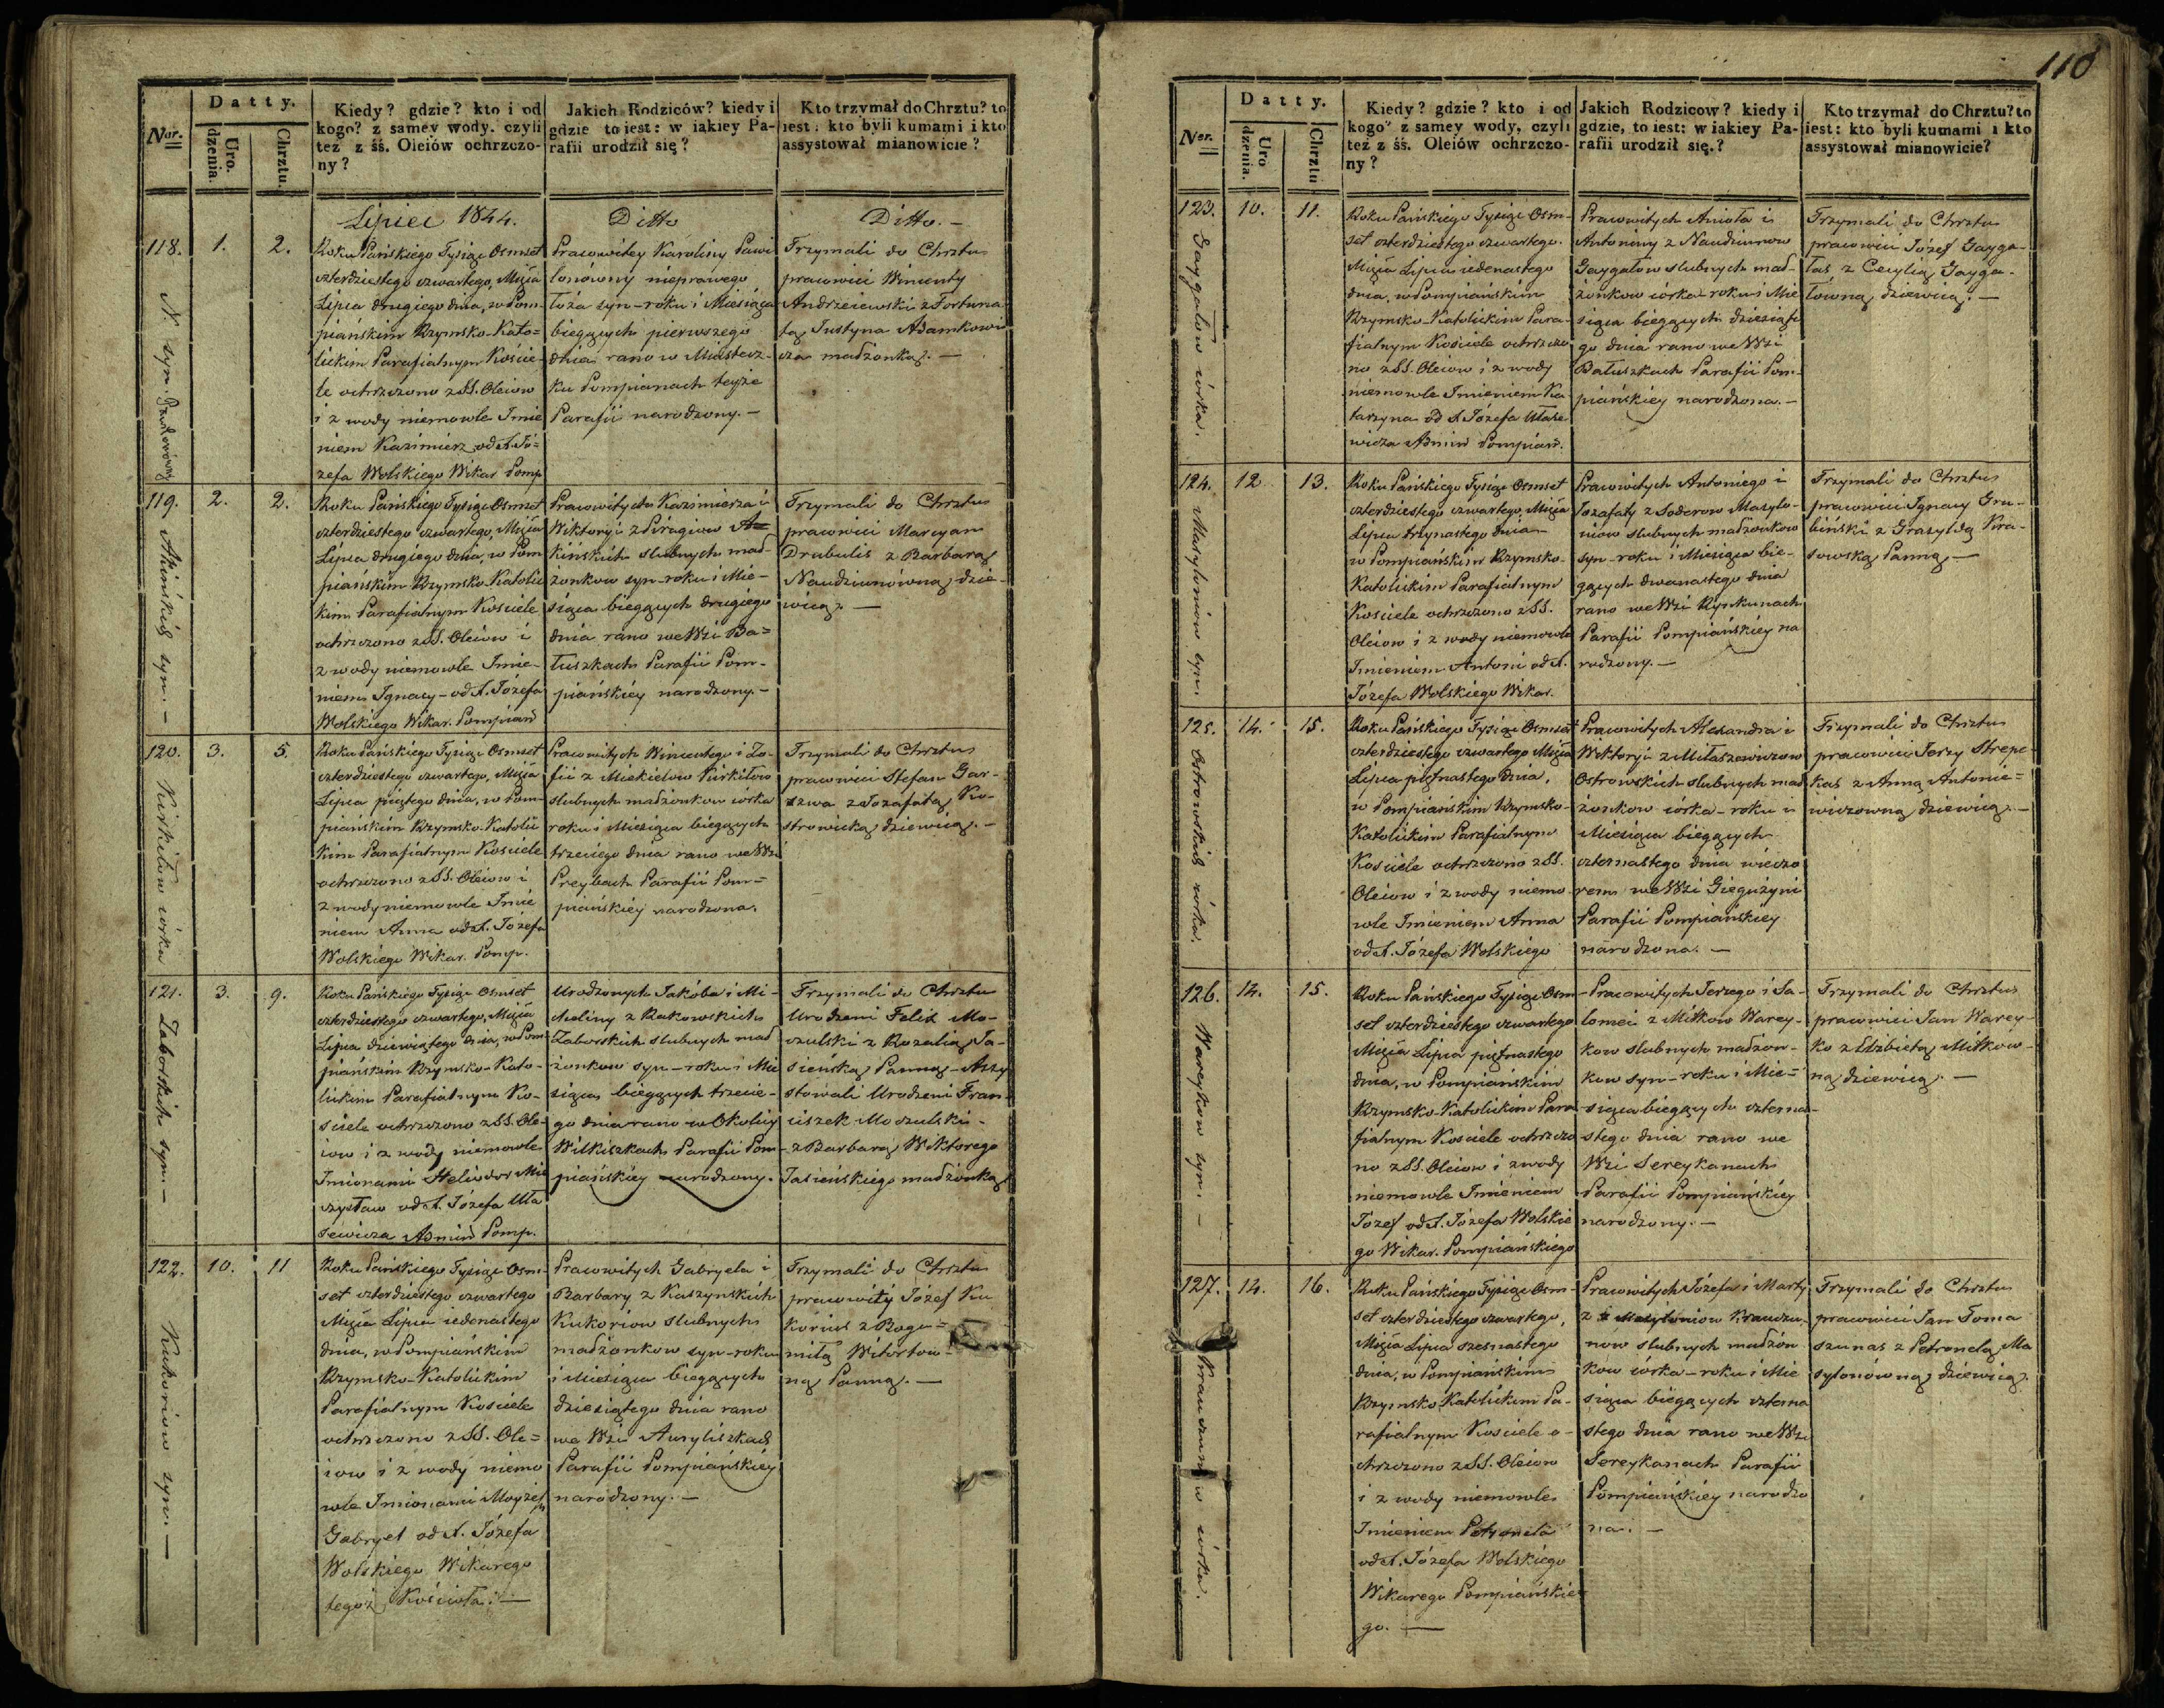 110
Datty.
Ner.
Uro.
dzenia.
Chrztu.
Kiedy? gdzie? kto i od
kogo? z samey wody, czyli
też z śś. Oleiów ochrzczo-
ny?
Jakich Rodziców? kiedy i
gdzie to iest: w iakiey Pa-
rafii urodził się?
Kto trzymał do Chrztu? to
iest: kto byli kumami i kto
assystował mianowicie?
Lipiec 1844.
Ditto
Ditto. -
118.
1.
2.
N. syn.
Roku Pańskiego Tysiąc Osmset
czterdziestego czwartego, Mięsiąca
Lipca drugiego dnia, w Pom-
piańskim Rzymsko-Kato=
lickim Parafialnym Koście-
le ochrzczono z SS. Oleiow
i z wody niemowle Imie
niem Kazimierz od X. Jó=
zefa Wolskiego Wikar. Pomp
Pracowitey Karoliny Pawi
lonówny nieprawego
łoża syn - roku i Miesiąca
biegących pierwszego
dnia rano w Miastecz-
ku Pompianach teyże
Parafii narodzony. -
Trzymali do Chrztu
pracowici Wincenty
Andrzeiewski z Fortuna
tą Justyna Adamkowi
cza małżonką. -
119.
2.
2.
Akińskich syn. -
Roku Pańskiego Tysiąc Osmset
czterdziestego czwartego, Mięsiąca
Lipca drugiego dnia, w Pom
piańskim Rzymsko-Katolic
kim Parafialnym Kościele
ochrzczono z SS. Oleiow i
z wody niemowle Imie-
niem Ignacy - od X. Józefa
Wolskiego Wikar. Pompiań
Pracowitych Kazimierza i
Wiktoryi z Piragiow A=
kińskich slubnych mał
żonkow syn - roku i Mie-
siąca biegących drugiego
dnia rano we Wsi Ba=
łuszkach Parafii Pom-
piańskiey narodzony. -
Trzymali do Chrztu
pracowici Marcyan
Drabulis z Barbarą
Naudziunówną dzie-
wicą. -
120.
3.
5.
Kirkiłow córka
Roku Pańskiego Tysiąc Osmset
czterdziestego czwartego, Mięsiąca
Lipca piątego dnia, w Pom-
piańskim Rzymsko-Katolic
kim Parafialnym Kościele
ochrzczono z SS. Oleiow i
z wody niemowle Imie
niem Anna od X. Józefa
Wolskiego Wikar. Pomp.
Pracowitych Wincentego i Zo-
fii z Mickielow Kirkiłow
slubnych małżonkow córka
roku i Miesiąca biegących
trzeciego dnia rano we Wsi
Preybach Parafii Pom=
piańskiey narodzona.
Trzymali do Chrztu
pracowici Stefan Gar-
szwa z Jozafatą Ko-
strowicką dziewicą. -
121.
3.
9.
Zaborskich syn. -
Roku Pańskiego Tysiąc Osmset
czterdziestego czwartego, Mięsiąca
Lipca dziewiątego dnia, w Pom
piańskim Rzymsko-Kato-
lickim Parafialnym Ko-
ściele ochrzczono z SS. Ole-
iow i z wody niemowle
Imionami Heliodor Mie
czysław od X. Józefa Uła
sewicza Admin Pomp.
Urodzonych Jakóba i Mi-
chaliny z Rakowskich
Zaborskich slubnych mał
żonkow syn - roku i Mie
siąca biegących trzecie-
go dnia rano w Okolicy
Wilkiszkach Parafii Pom
piańskiey narodzony.
Trzymali do Chrztu
Urodzeni Felix Mo-
czulski z Rozalią Ja-
sieńską Panną - Assy
stowali Urodzeni Fran
ciszek Moczulski -
z Barbarą Wiktorego
Jasieńskiego małżonką
122.
10.
11
Kukoriow syn. -
Roku Pańskiego Tysiąc Osm-
set czterdziestego czwartego
Mięsiąca Lipca iedenastego
dnia, w Pompiańskim
Rzymsko-Katolickim
Parafialnym Kościele
ochrzczono z SS. Ole=
iow i z wody niemo
wle Imionami Moyżesz
Gabryel od X. Józefa
Wolskiego Wikarego
tegoż Kościoła. -
Pracowitych Gabryela i
Barbary z Kaszynskich
Kukoriow slubnych
małżonkow syn - roku
i Miesiąca biegących
dziesiątego dnia rano
we Wsi Auryliszkach
Parafii Pompiańskiey
narodzony. -
Trzymali do Chrztu
pracowity Józef Ku
korius z Bogu=
miłą Witortow-
ną Panną. -
Datty.
Ner.
Uro
dzenia.
Chrztu
Kiedy? gdzie? kto i od
kogo? z samey wody, czyli
też z śś. Oleiów ochrzczo-
ny?
Jakich Rodzicow? kiedy i
gdzie, to iest: w iakiey Pa-
rafii urodził się.?
Kto trzymał do Chrztu? to
iest: kto byli kumami i kto
assystował mianowicie?
123.
10.
11.
Gaygałow córka.
Roku Pańskiego Tysiąc Osm-
set czterdziestego czwartego.
Mięsiąca Lipca iedenastego
dnia, w Pompiańskim
Rzymsko-Katolickim Para-
fialnym Kościele ochrzczo
no z SS. Oleiow i z wody
niemowle Imieniem Ka
tarzyna od X. Józefa Ułase
wicza Admin Pompiań.
Pracowitych Anioła i
Antoniny z Naudziunow
Gaygałow slubnych mał-
żonkow córka - roku i Mie
siąca biegących dziesiąte
go dnia rano we Wsi
Bałuszkach Parafii Pom-
piańskiey narodzona. -
Trzymali do Chrztu
pracowici Józef Gayga-
łas z Cecylią Gayga-
łówną dziewicą. -
124.
12.
13.
Masyloniow syn.
Roku Pańskiego Tysiąc Osmset
czterdziestego czwartego, Mięsiąca
Lipca trzynastego dnia -
w Pompiańskim Rzymsko-
Katolickim Parafialnym
Kościele ochrzczono z SS.
Oleiow i z wody niemowle
Imieniem Antoni od X.
Józefa Wolskiego Wikar.
Pracowitych Antoniego i
Jozafaty z Soderow Masylo-
niow slubnych małżonkow
syn - roku i Miesiąca bie-
gących dwanastego dnia
rano we Wsi Rynkunach
Parafii Pompiańskiey na
rodzony. -
Trzymali do Chrztu
pracowici Ignacy Gru-
biński z Grasyldą Kra-
sowską Panną. -
125.
14.
15.
Ostrowskich córka.
Roku Pańskiego Tysiąc Osmset
czterdziestego czwartego Mięsiąca
Lipca piętnastego dnia,
w Pompiańskim Rzymsko-
Katolickim Parafialnym
Kościele ochrzczono z SS.
Oleiow i z wody niemo
wle Imieniem Anna
od X. Józefa Wolskiego
Pracowitych Alexandra i
Wiktoryi z Miłaszewiczow
Ostrowskich slubnych mał
żonkow córka - roku i
Miesiąca biegących
czternastego dnia wieczo
rem we Wsi Giegużyni
Parafii Pompiańskiey
narodzona. -
Trzymali do Chrztu
pracowici Jerzy Strepe-
kas z Anną Antonie=
wiczowną dziewicą. -
126.
14.
15.
Wareykow syn. -
Roku Pańskiego Tysiąc Osm-
set czterdziestego czwartego
Mięsiąca Lipca piętnastego
dnia, w Pompiańskim
Rzymsko-Katolickim Para
fialnym Kościele ochrzczo
no z SS. Oleiow i z wody
niemowle Imieniem
Jozef od X. Józefa Wolskie
go Wikar. Pompiańskiego
Pracowitych Jerzego i Sa-
lomei z Mitkow Warey-
kow slubnych małżon-
kow syn - roku i Mie=
siąca biegących czterna-
stego dnia rano we
Wsi Sereykanach
Parafii Pompiańskiey
narodzony. -
Trzymali do Chrztu
pracowici Jan Warey-
ko z Elżbietą Mitkow-
ną dziewicą. -
127.
14.
16.
Krauczunow córka.
Roku Pańskiego Tysiąc Osm-
set czterdziestego czwartego,
Mięsiąca Lipca szesnastego
dnia, w Pompiańskim
Rzymsko-Katolickim Pa-
rafialnym Kościele o-
chrzczono z SS. Oleiow
i z wody niemowle
Imieniem Petronela
od X. Józefa Wolskiego
Wikarego Pompiańskie
go. -
Pracowitych Józefa i Marty
z Masyloniow Krauczu-
now slubnych małżon
kow córka - roku i Mie
siąca biegących czterna
stego dnia rano we Wsi
Sereykanach Parafii
Pompiańskiey narodzo
na. -
Trzymali do Chrztu
pracowici Jan Toma
szunas z Petronelą Ma
sylonówną dziewicą.